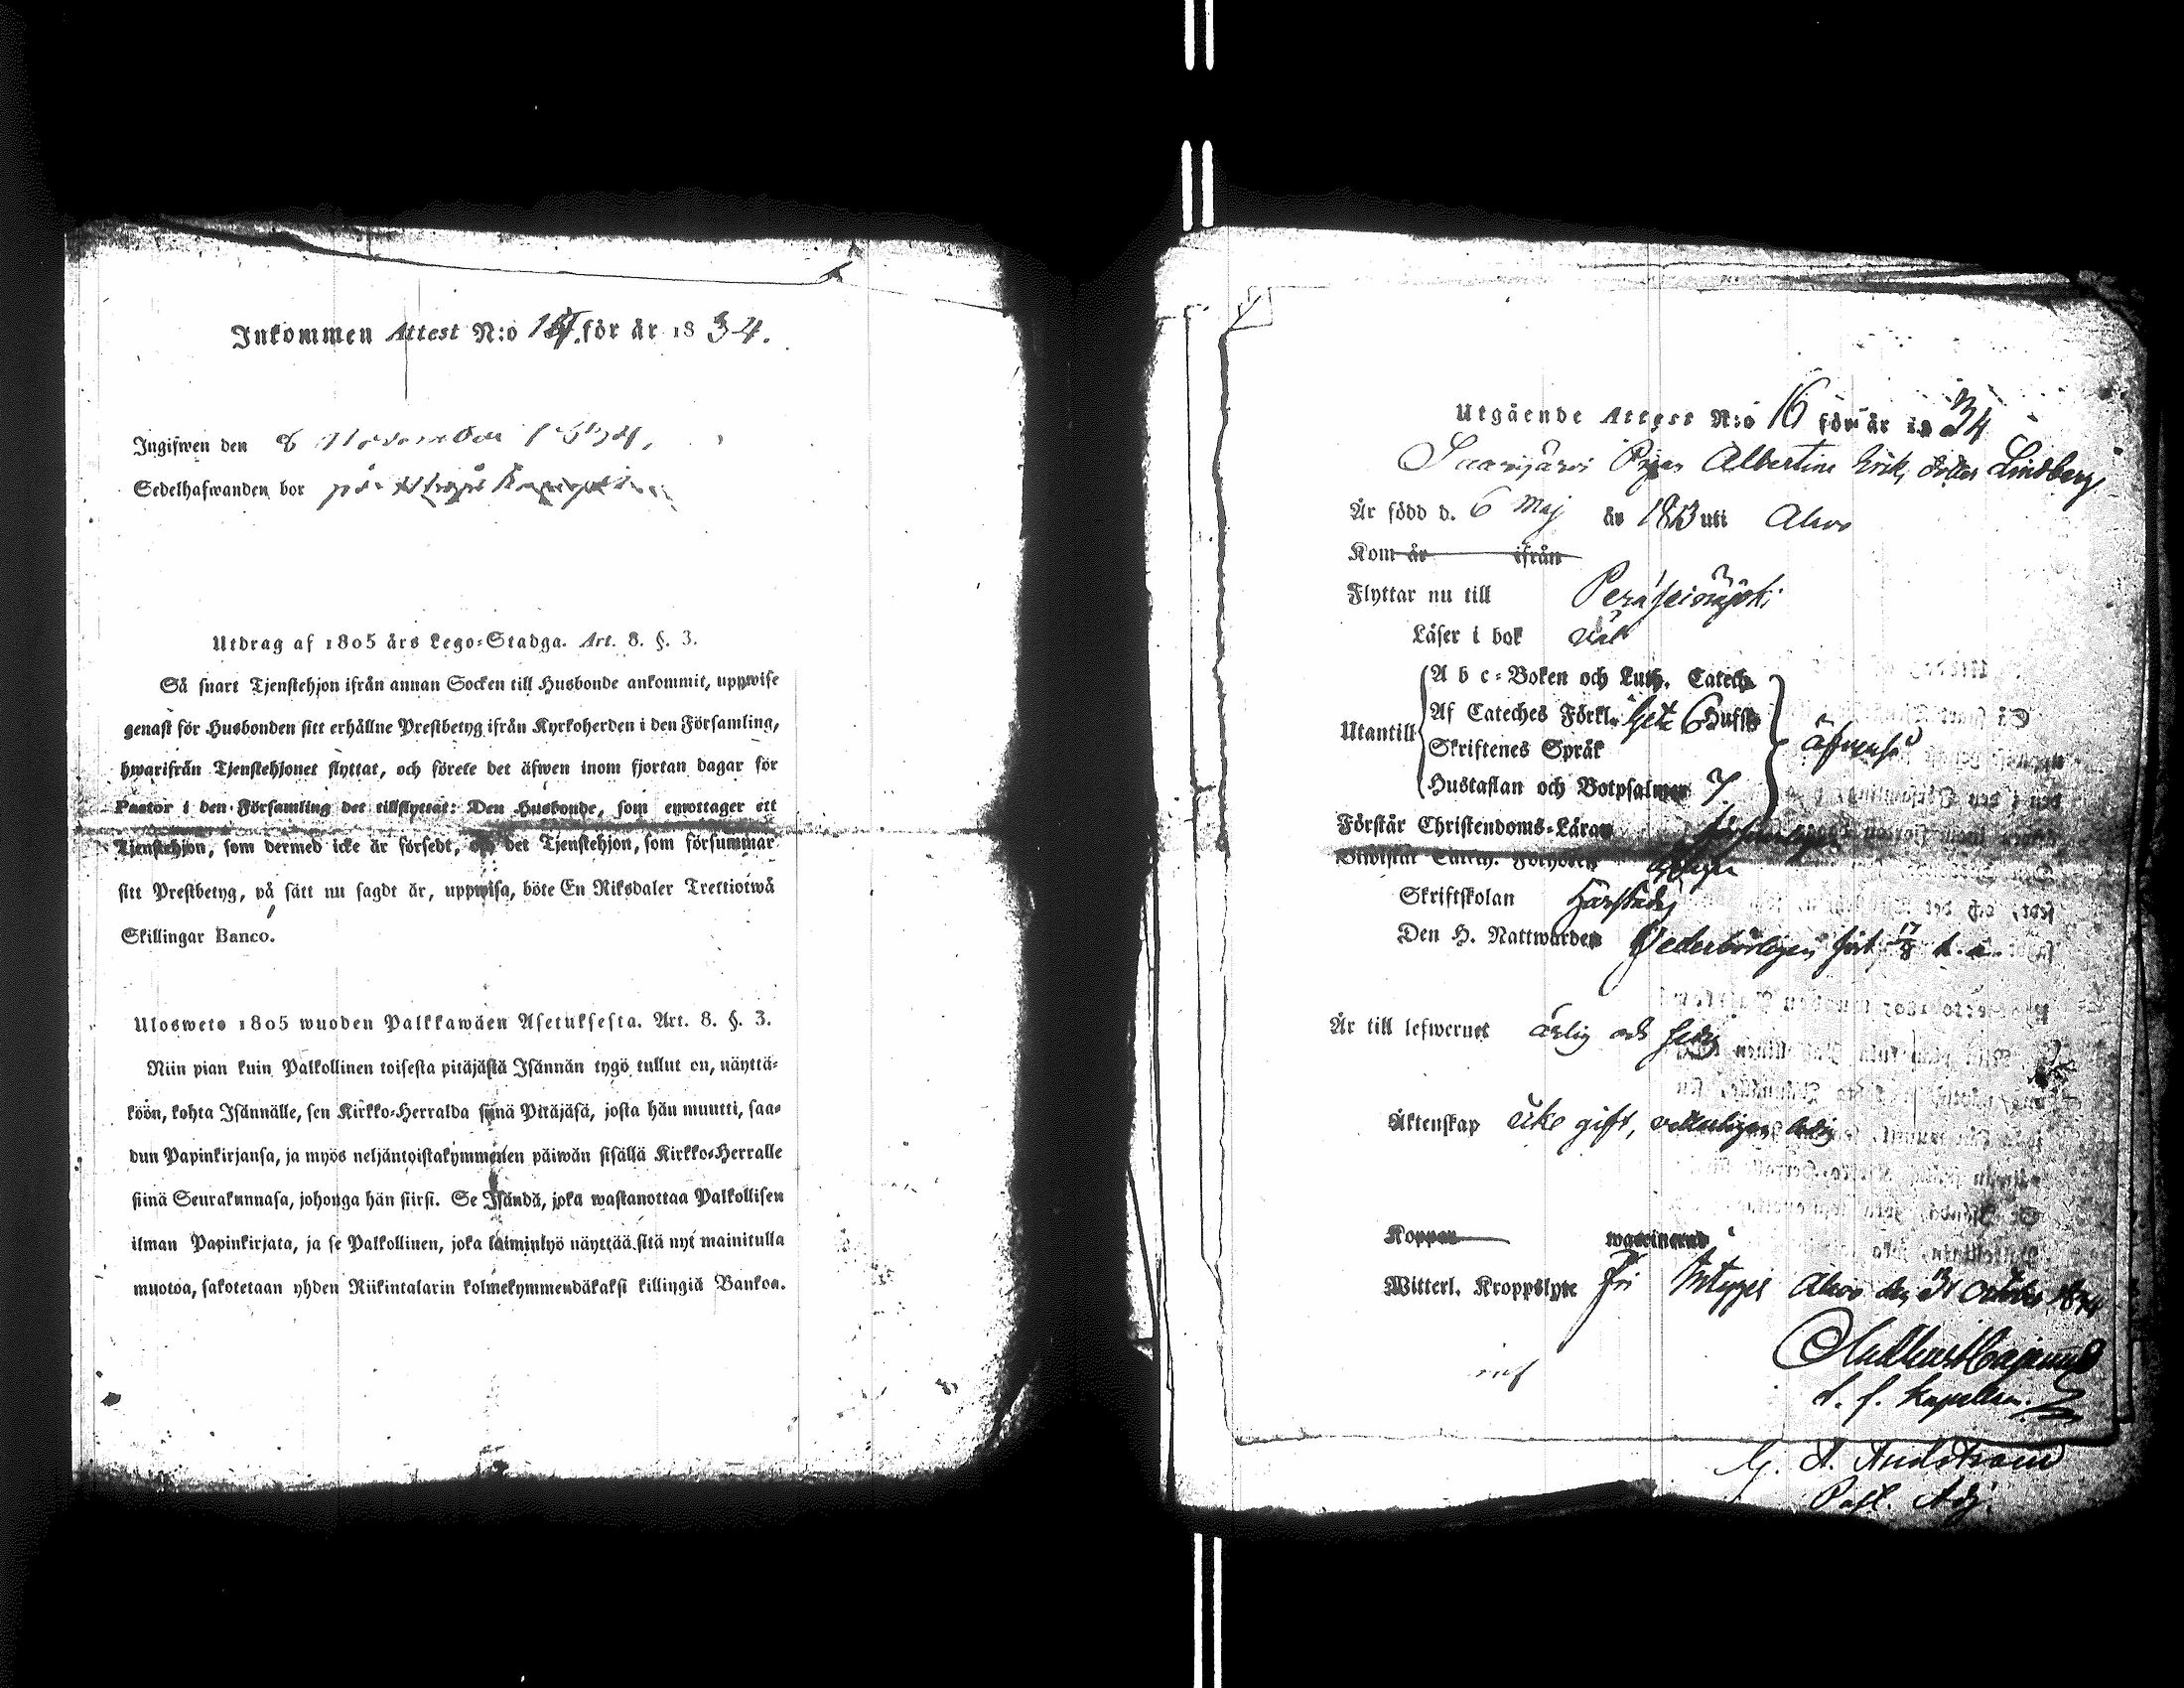 Inkommen Attest N:o för år 1834.
Ingifwen den 8 November 1834.
Sedelhafwanden bor på
Utdrag af 1805 års Lego-Stadga. Art. 8. §. 3.
Så snart Tjenstehjon ifrån annan Socken till Husbonde ankommit, uppwise
genast för Husbonden sitt erhållne Prestbetyg ifrån Kyrkoherden i den Församling,
hwarifrån Tjenstehjonet flyttat, och förete det äfwen inom fjortan dagar för
Pastor i den Församling det tillflyttat: Den Husbonde, som emottager ett
Tjenstehjon, som dermed icke är försedt, och det Tjenstehjon, som försummar
sitt Prestbetyg, på sätt nu sagdt är, uppwisa, böte En Riksdaler Trettiotwå
Skillingar Banco.
Uloswеto 1805 wuoden Palkkawäen Asetuksesta. Art. 8. §. 3.
Niin pian kuin Palkollinen toisesta pitäjästä Isännän tygö tullut on, näyttä-
köön, kohta Isännälle, sen Kirkko-Herralda siinä Pitäjäsä, josta hän muutti, saa-
dun Papinkirjansa, ja myös neljäntoistakymmenen päiwän sisällä Kirkko-Herralle
siinä Seurakunnasa, johonga hän siirsi. Se Isändä, joka wastanottaa Palkollisen
ilman Papinkirjata, ja se Palkollinen, joka laiminlyö näyttää sitä nyt mainitulla
muotoa, sakotetaan yhden Riikintalarin kolmekymmendäkaksi killingiä Bankoa.
Utgående Attest N:o 16 för år 1834
Pigan Albertina Eriks dotter Lindberg
Är född d. 6 Maj år 1813 uti Alavo
Kom år ifrån
Flyttar nu till Peräseinäjoki
Läser i bok väl
Utantill
A b c-Boken och Luth. Catech.
Af Cateches Förkl. 6 Hufst.
Skriftenes Språk
Hustaflan och Botpsalmer 7
äfvenså
Förstår Christendoms-Läran försvarligen
Biwistat Catech. Förhören
Skriftskolan
Den H. Nattwarden Vederbörligen sist
Är till lefwernet ärlig och
Äktenskap icke gift, vetterligen ledig
Koppor waccinerad
Witterl. Kroppslyte Fri Intygar Alavo den 31 October 1834
Kapellan.
Past. Adj.